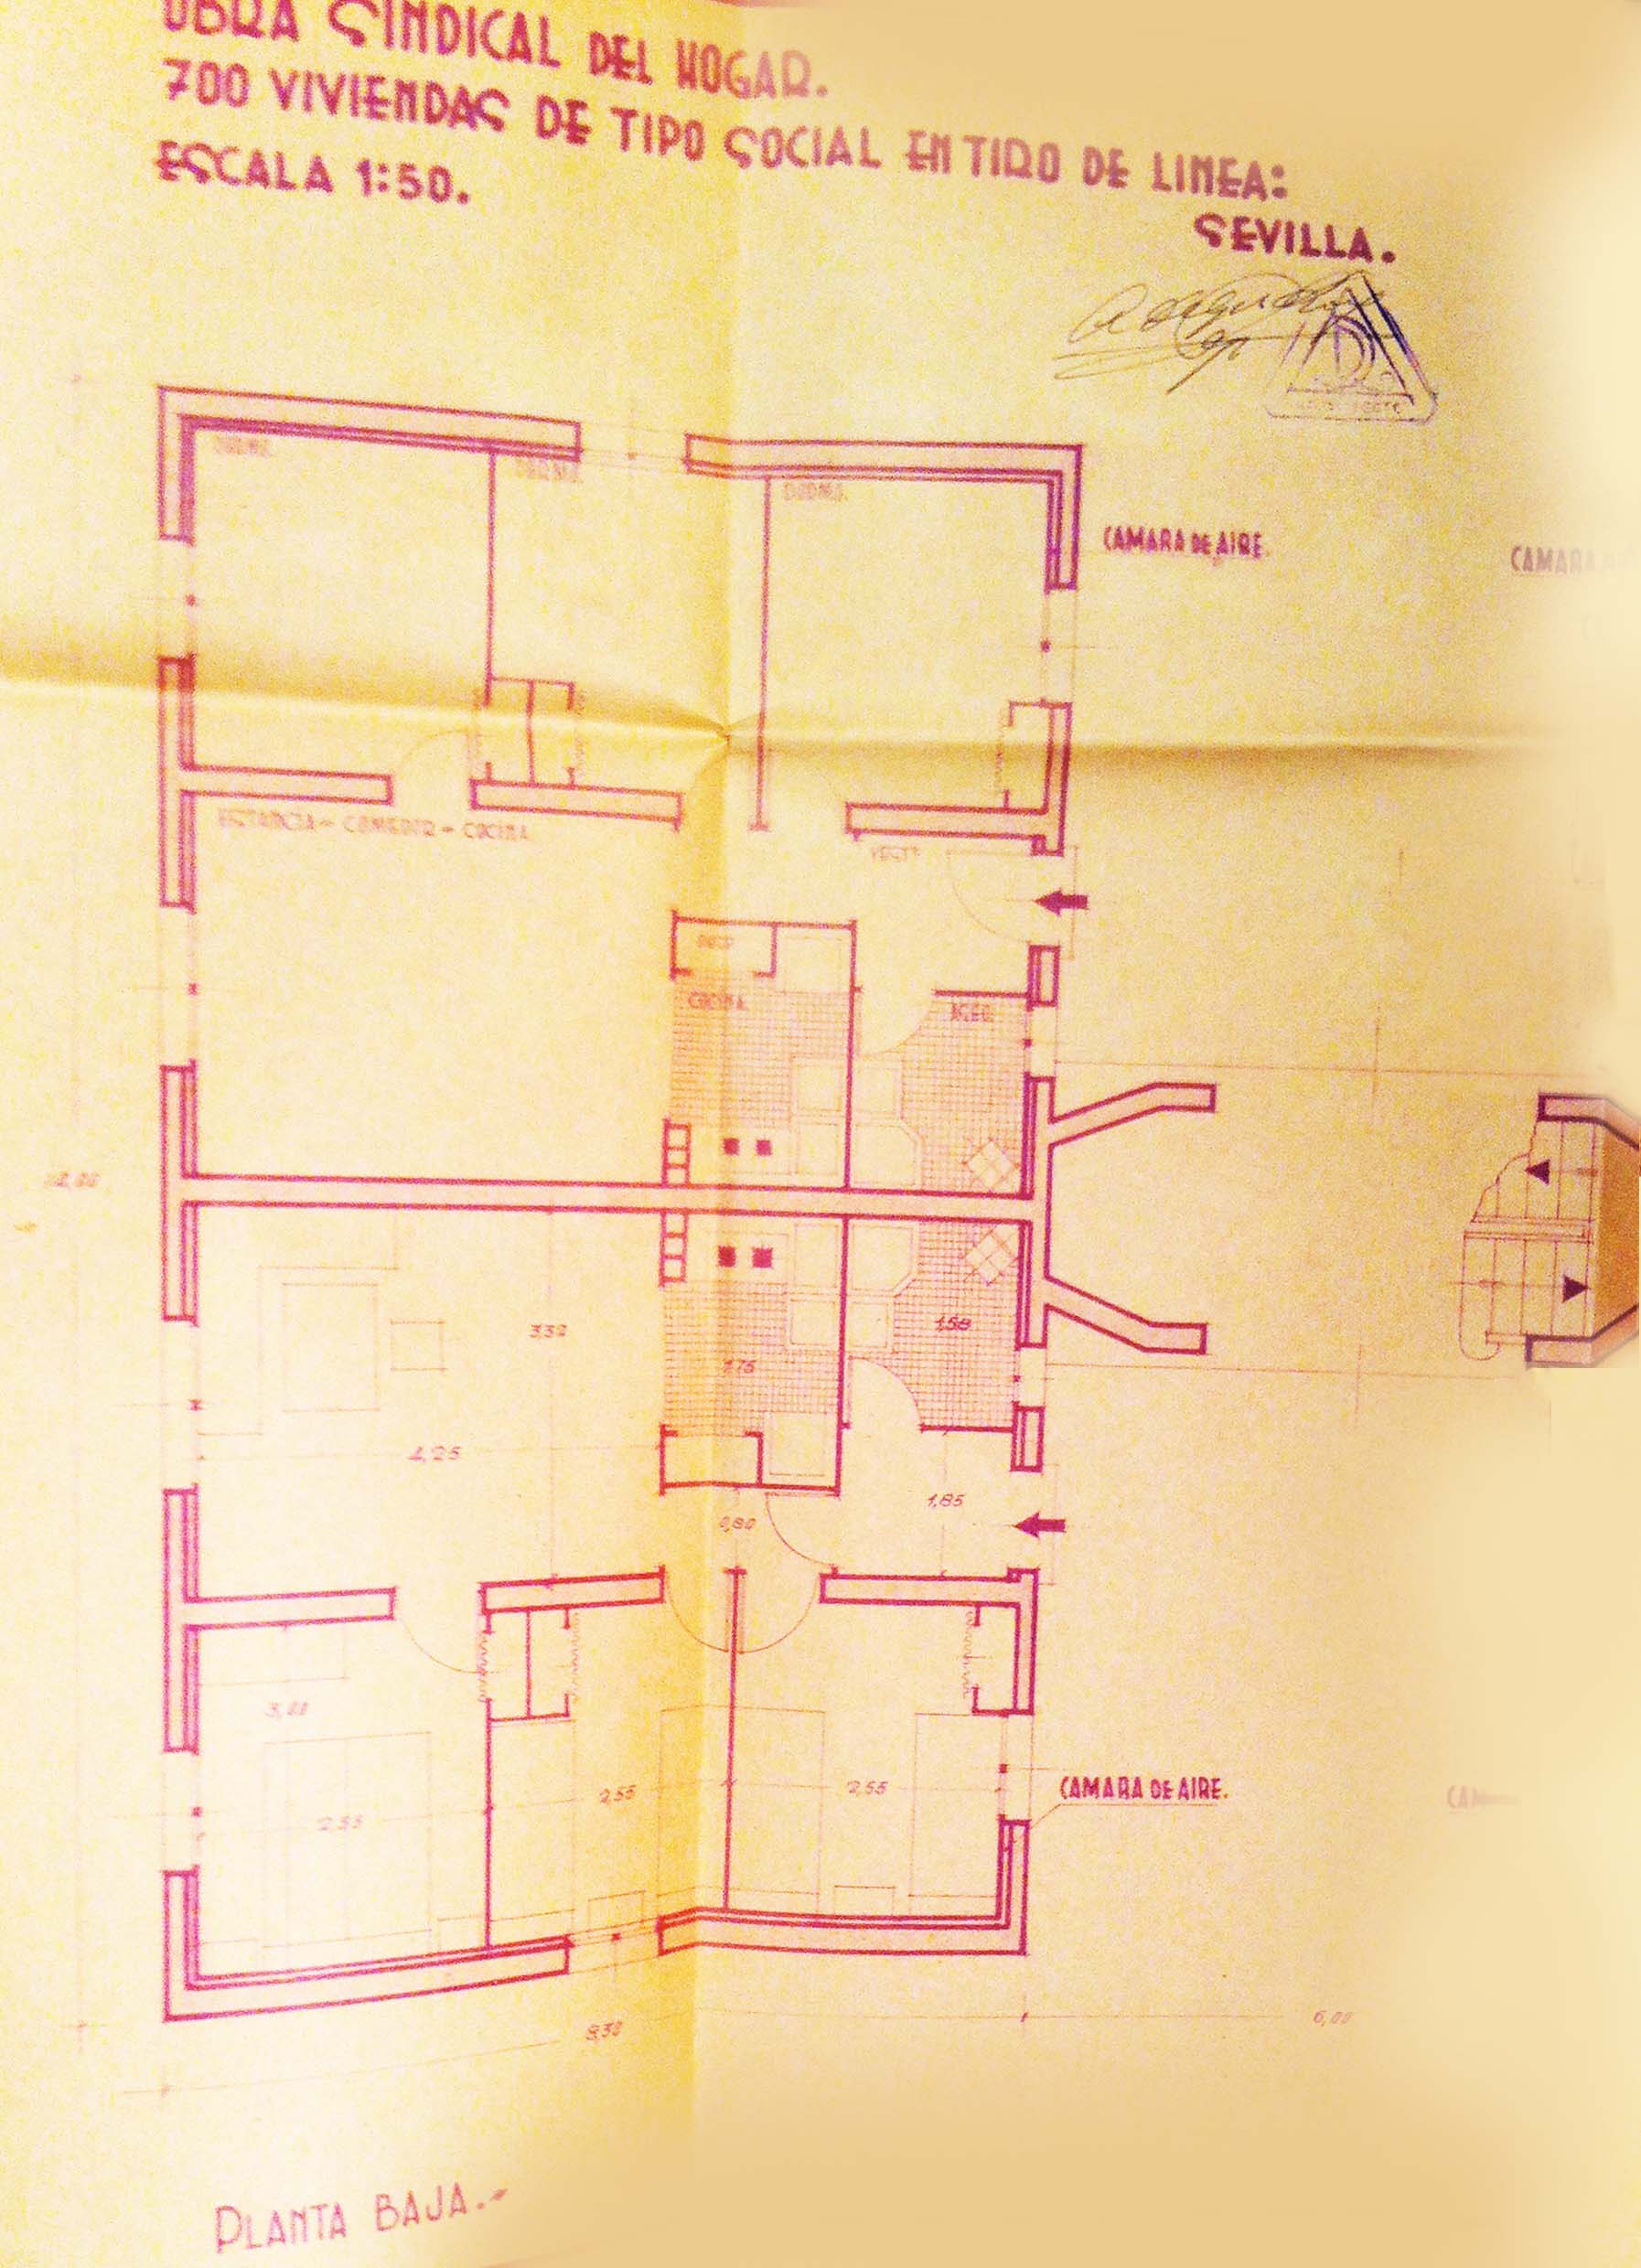 OBRA SINDICAL DEL HOGAR.
700 VIVIENDAS DE TIPO SOCIAL EN TIRO DE LINEA:
ESCALA 1:50.
SEVILLA.
DORMO.
DORMO.
DORMO.
CAMARA DE AIRE.
CAMARA
ESTANCIA - COMEDOR - COCINA.
VEST.
COCINA.
ASEO.
3,30
1,75
1,50
4,25
1,85
0,80
3,00
2,55
2,55
2,55
CAMARA DE AIRE.
CAM
8,30
6,00
PLANTA BAJA.-